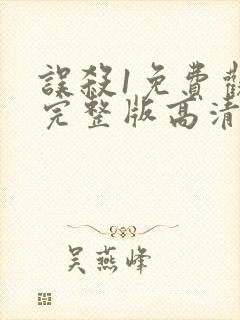 誤殺1免費觀
完整版高清
吴燕峰